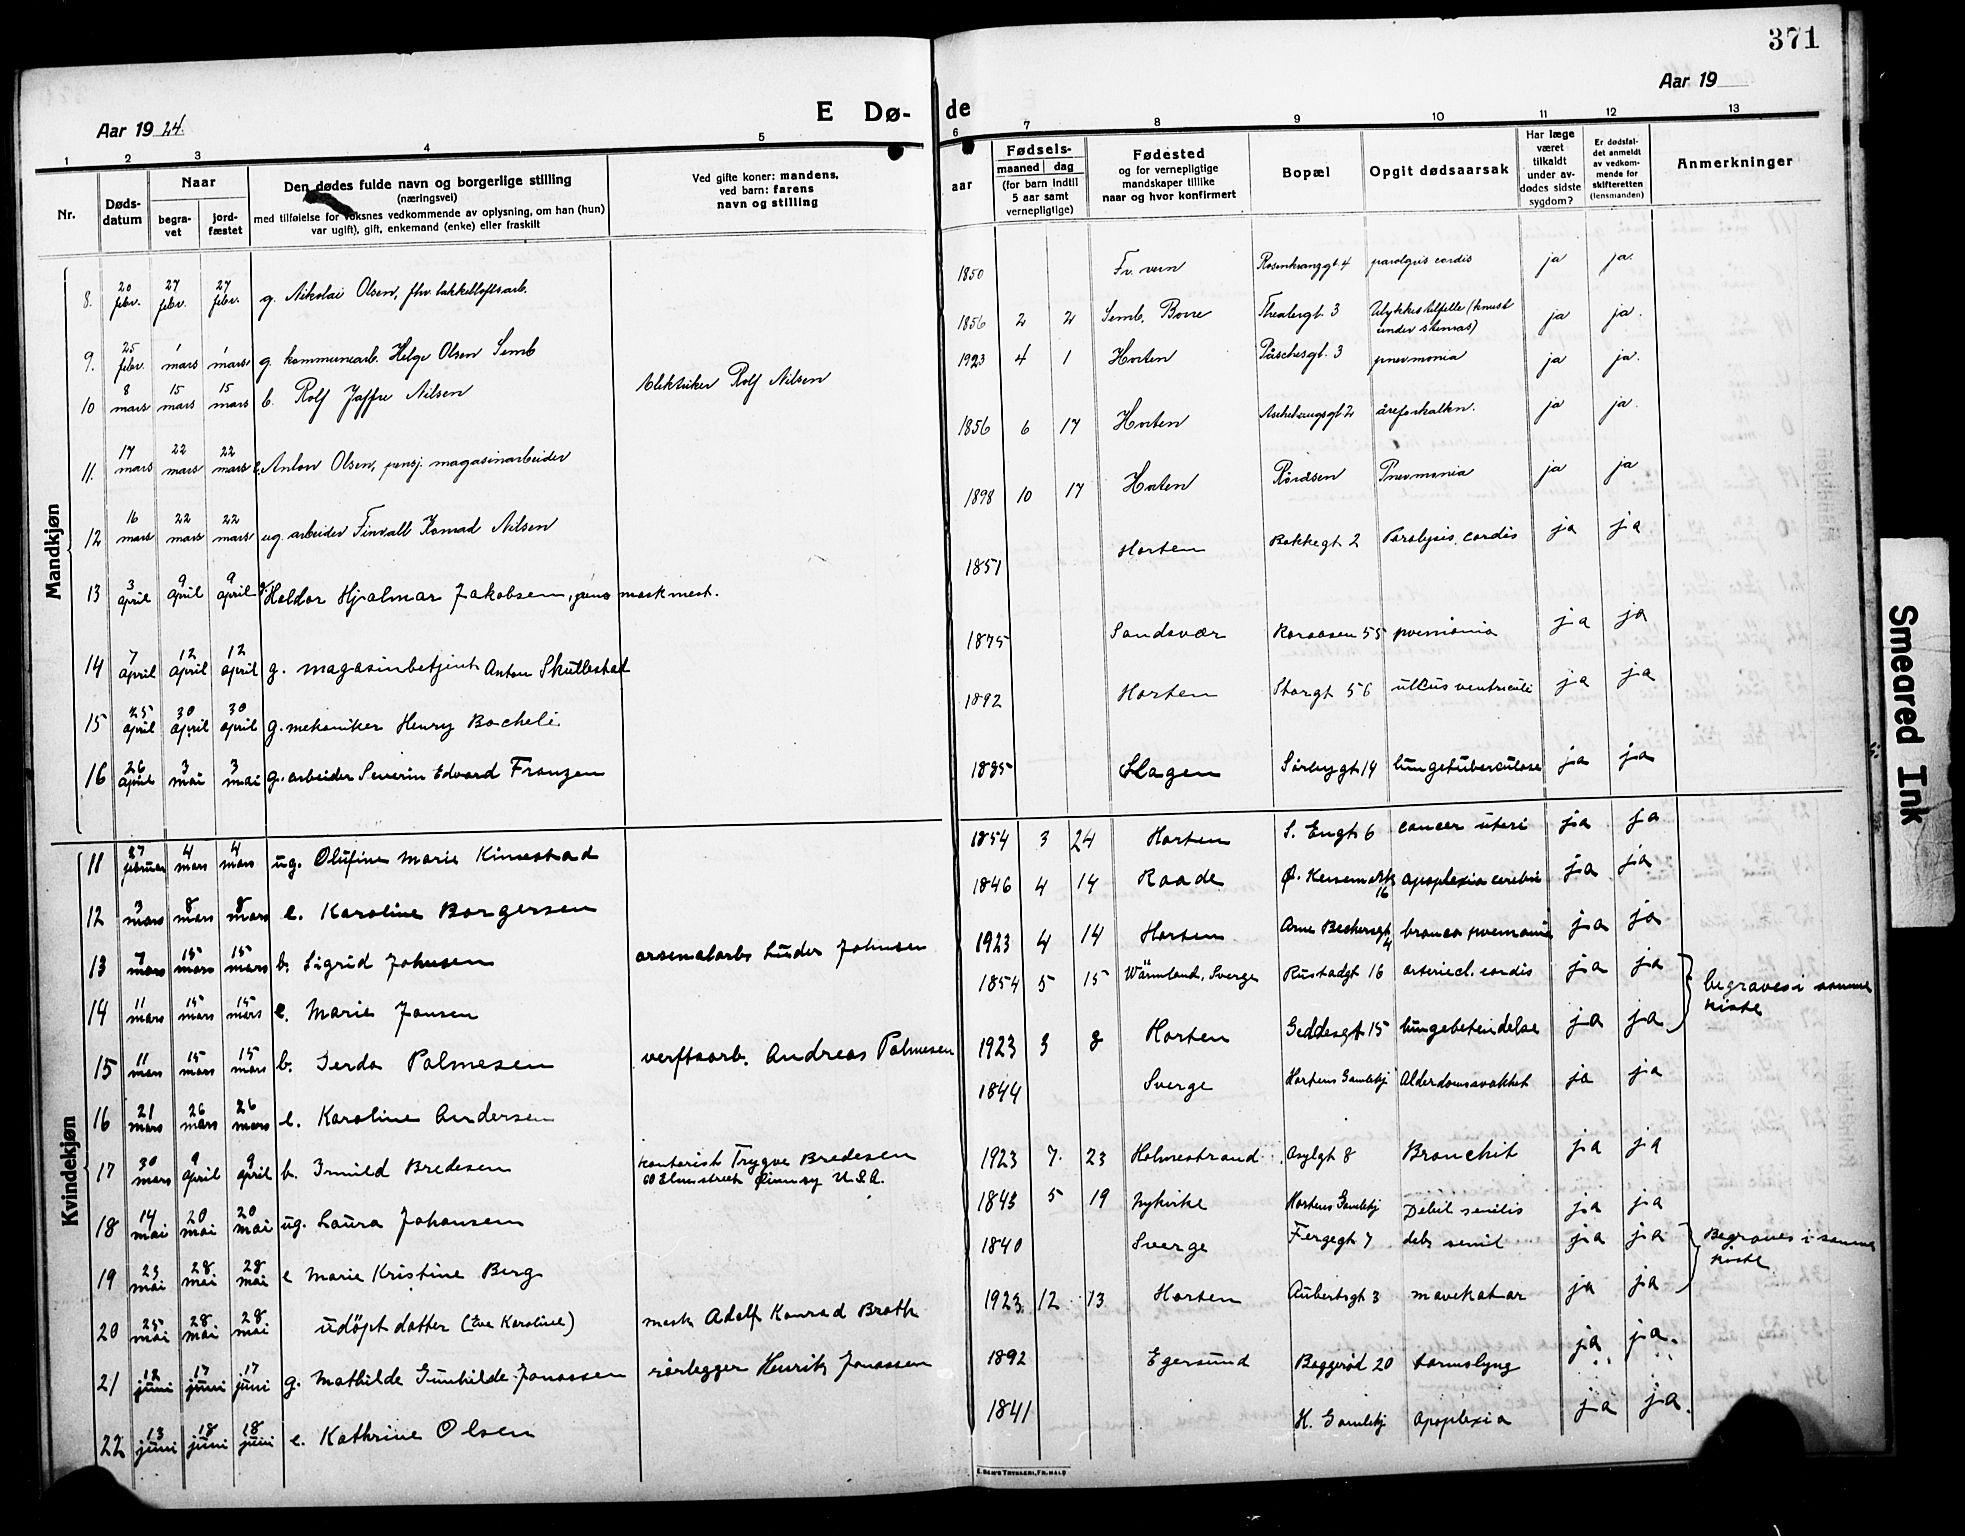 371
Aar 1924. E Dø- de Aar 19
1 2 3 4 5 6 7 8 9 10 11 12 13
Nr.
Dødsdatum
Naar
begravet
jordfæstet
Den dødes fulde navn og borgerlige stilling
(næringsvei)
med tilføielse for voksnes vedkommende av oplysning, om han (hun)
var ugift), gift, enkemand (enke) eller fraskilt
Ved gifte koner: mandens,
ved barn: farens
navn og stilling
Fødsels-
aar
maaned dag
(for barn indtil
5 aar samt
vernepligtige)
Fødested
og for vernepligtige
mandskaper tillike
naar og hvor konfirmert
Bopæl
Opgit dødsaarsak
Har læge
været
tilkaldt
under av-
dødes sidste
sygdom?
Er dødsfal-
det anmeldt
av vedkom-
mende for
skifteretten
(lensmanden)
Anmerkninger
Mandkjøn
8. 20 febr. 27 febr. 27 febr. g. Nikolai Olsen, fhv. takkelloftsarb. 1850 Fr. vern Rosenkranzgt 4 paralysis cordis ja ja.
9. 25 febr. 1 mars 1 mars g. kommunearb. Helge Olsen Semb 1856 2 2 Semb, Borre Theatergt. 3 Ulykkestilfelle (knust under stenras) ja ja.
10 8 mars 15 mars 15 mars b. Rolf Jaffre Nilsen elektriker Rolf Nilsen 1923 4 1 Horten Påschesgt. 3 pnevmonia ja ja.
11. 17 mars 22 mars 22 mars e. Anton Olsen, pensj. magasinarbeider 1856 6 17 Horten Aschehougsgt 2 åreforkalkn. ja ja.
12 16 mars 22 mars 22 mars ug. arbeider Finvall Konrad Nilsen 1898 10 17 Horten Rørdsen Pnevmonia ja ja
13 3 april 9 april 9 april g. Haldor Hjalmar Jakobsen, pens maskmest. 1851 Horten Bakkegt 2 Paralysis cordis ja ja
14 7 april 12 april 12 april g. magasinbetjent Anton Skullestad 1875 Sandsvær Raraasen 55 pnemonia ja ja
15 25 april 30 april 30 april g. mekaniker Henry Bacheli 1892 Horten Storgt 56 ulcus ventriculi ja ja
16 26 april 3 mai 3 mai g. arbeider Severin Edvard Franzen 1885 Slagen Sørbygt 14 lungetuberculose ja ja
Kvindekjøn
11 27 februar 4 mars 4 mars ug. Olufine Marie Kimestad 1854 3 24 Horten S. Engt 6 cancer uteri ja ja
12 3 mars 8 mars 8 mars e. Karoline Borgersen 1846 4 14 Raade Ø. 16 apoplexia cerebri ja ja
13 7 mars 15 mars 15 mars b. Sigrid Johnsen arsenalarb Luder Johnsen 1923 4 14 Horten Arne Beckersgt 4 bronco pnemonia ja ja
14 11 mars 15 mars 15 mars e. Marie Jansen 1854 5 15 Wärmland, Sverge Rustadgt 16 arteriecl. cordis ja ja
begraves i samme
kiste
15 11 mars 15 mars 15 mars b. Gerda Palmesen verftsarb. Andreas Palmesen 1923 3 8 Horten Geddesgt 15 lungebetendelse ja ja
16 21 mars 26 mars 26 mars e. Karoline Andersen 1844 Sverge Hortens Gamlehj Alderdomssvakket ja ja
17 30 mars 9 april 9 april b. Irmild Bredesen kontorist Trygve Bredesen
60 Elmstreet U.S.A. 1923 7. 23 Holmestrand Asylgt 8 Bronchit ja ja
18 14 mai 20 mai 20 mai ug. Laura Johansen 1843 5 19 Nykirke Hortens Gamlehj Debil senilis ja ja
19 23 mai 28 mai 28 mai e Marie Kristine Berg 1840 Sverge Fergegt 7 deb. senil ja ja
Begraves i samme
kiste
20 25 mai 28 mai 28 mai udöpt datter (Eva Karoline) mask Adolf Konrad Brath 1923 12 13 Horten Aubertsgt 3 mavekatar ja ja
21 12 juni 17 juni 17 juni g. Mathilde Gunhilde Jonassen rørlegger Henrik Jonassen 1892 Egersund Baggerød 20 tarmslyng ja ja.
22 13 juni 18 juni 18 juni e. Kathrine Olsen 1841 H. Gamlehj apoplexia ja ja.
E. SEM'S TRYKKERI, FR.HALD
Smeared Ink